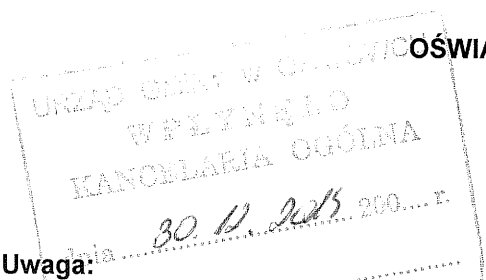 OŚWIA
URZĄD GMINY W
WPŁYNĘŁO
KANCELARIA OGÓLNA
dnia 30. 12. 200.... r.
Uwaga: